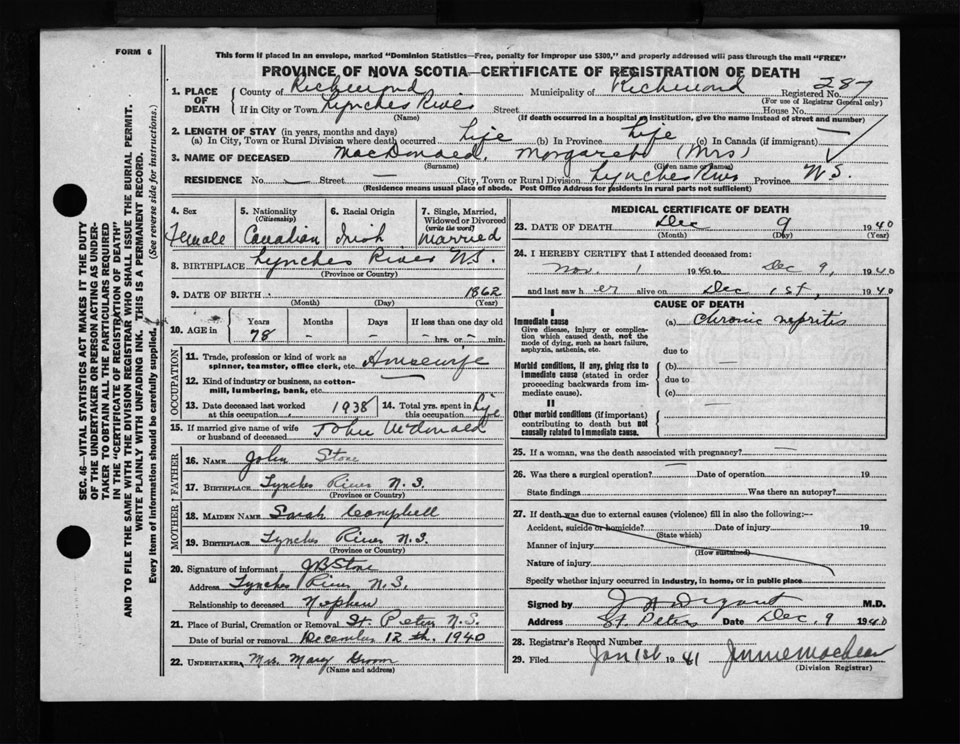 FORM 6
This form if placed in an envelope, marked "Dominion Statistics—Free, penalty for improper use $300," and properly addressed will pass through the mail "FREE"
PROVINCE OF NOVA SCOTIA—CERTIFICATE OF REGISTRATION OF DEATH
SEC. 46—VITAL STATISTICS ACT MAKES IT THE DUTY
OF THE UNDERTAKER OR PERSON ACTING AS UNDER-
TAKER TO OBTAIN ALL THE PARTICULARS REQUIRED
IN THE "CERTIFICATE OF REGISTRATION OF DEATH"
AND TO FILE THE SAME WITH THE DIVISION REGISTRAR WHO SHALL ISSUE THE BURIAL PERMIT.
WRITE PLAINLY WITH UNFADING INK. THIS IS A PERMANENT RECORD.
Every item of information should be carefully supplied. (See reverse side for instructions.)
1. PLACE OF DEATH
County of Richmond Municipality of Richmond Registered No. 287
(For use of Registrar General only)
If in City or Town Lynches River Street House No.
(Name) (If death occurred in a hospital or institution, give the name instead of street and number)
2. LENGTH OF STAY (in years, months and days)
(a) In City, Town or Rural Division where death occurred Life (b) In Province Life (c) In Canada (if immigrant) —
3. NAME OF DECEASED MacDonald, Margaret (Mrs)
(Surname) (Given name or names)
RESIDENCE No. — Street — City, Town or Rural Division Lynches River Province N.S.
(Residence means usual place of abode. Post Office Address for residents in rural parts not sufficient)
4. Sex Female
5. Nationality (Citizenship) Canadian
6. Racial Origin Irish
7. Single, Married, Widowed or Divorced (write the word) Married
8. BIRTHPLACE Lynches River N.S.
(Province or Country)
9. DATE OF BIRTH 1862
(Month) (Day) (Year)
10. AGE in Years 78 Months Days — If less than one day old — hrs. or — min.
OCCUPATION
11. Trade, profession or kind of work as spinner, teamster, office clerk, etc. Housewife
12. Kind of industry or business, as cotton-mill, lumbering, bank, etc. —
13. Date deceased last worked at this occupation 1938
14. Total yrs. spent in this occupation Life
15. If married give name of wife or husband of deceased John McDonald
FATHER
16. NAME John Stone
17. BIRTHPLACE Lynches River N.S.
(Province or Country)
MOTHER
18. MAIDEN NAME Sarah Campbell
19. BIRTHPLACE Lynches River N.S.
(Province or Country)
20. Signature of informant J B Stone
Address Lynches River N.S.
Relationship to deceased Nephew
21. Place of Burial, Cremation or Removal St. Peters N.S.
Date of burial or removal December 12th. 1940
22. UNDERTAKER Mrs. Mary
(Name and address)
MEDICAL CERTIFICATE OF DEATH
23. DATE OF DEATH Dec 9 1940
(Month) (Day) (Year)
24. I HEREBY CERTIFY that I attended deceased from:
Nov. 1 1940 to Dec 9, 1940
and last saw her alive on Dec 1st, 1940
CAUSE OF DEATH
I
Immediate cause
Give disease, injury or complication which caused death, not the mode of dying, such as heart failure, asphyxia, asthenia, etc.
(a) Chronic nepritis
due to
Morbid conditions, if any, giving rise to immediate cause (stated in order proceeding backwards from immediate cause).
(b) —
due to
(c)
II
Other morbid conditions (if important) contributing to death but not causally related to immediate cause.
25. If a woman, was the death associated with pregnancy? —
26. Was there a surgical operation? — Date of operation 19
State findings Was there an autopsy?
27. If death was due to external causes (violence) fill in also the following:—
Accident, suicide or homicide? Date of injury 19
(State which)
Manner of injury
(How sustained)
Nature of injury
Specify whether injury occurred in industry, in home, or in public place
Signed by M.D.
Address St. Peters Date Dec. 9 1940
28. Registrar's Record Number
29. Filed Jan 1941
(Division Registrar)